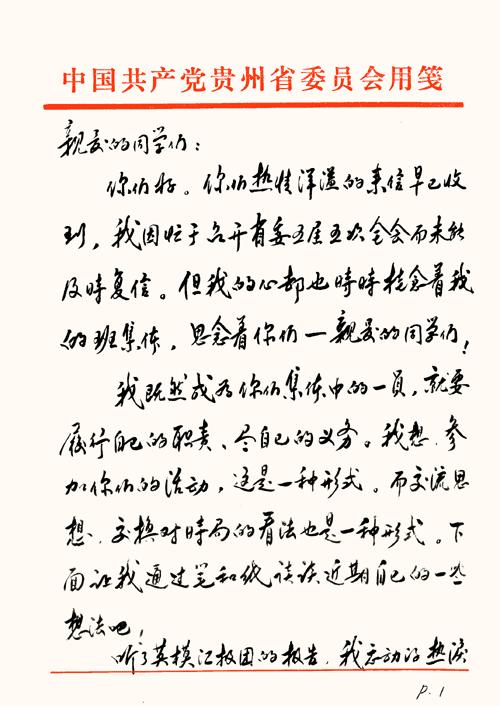 中国共产党贵州省委员会用笺
亲爱的同学们：
你们好。你们热情洋溢的来信早已收
到，我因忙于召开省委五届五次全会而未能
及時复信。但我的心却也時時挂念着我
的班集体，思念着你们—亲爱的同学们！
我既然成为你们集体中的一员，就要
履行自己的职责、尽自己的义务。我想，参
加你们的活动，这是一种形式。而交流思
想、交换对時局的看法也是一种形式。下
面让我通过笔和纸谈谈近期自己的一些
想法吧！
听了英模汇报团的报告，我感动的热淚
P.1